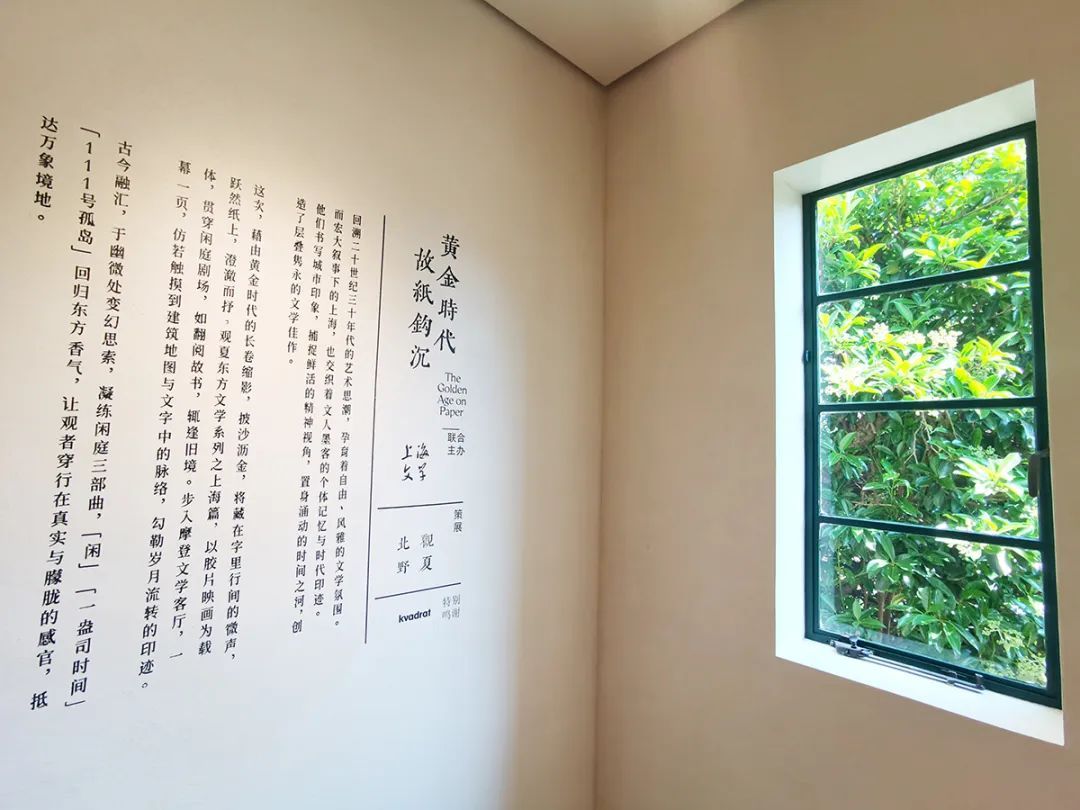 黄金時代
故紙鈎沉
The
Golden
Age on
Paper
联合
主办
上海
文学
策
展
觀夏
北野
特别
鸣谢
kvadrat
回溯二十世纪三十年代的艺术思潮，孕育着自由、风雅的文学氛围。
而宏大叙事下的上海，也交织着文人墨客的个体记忆与时代印迹。
他们书写城市印象，捕捉鲜活的精神视角，置身涌动的时间之河，创
造了层叠隽永的文学佳作。
这次，藉由黄金时代的长卷缩影，披沙沥金，将藏在字里行间的微声，
跃然纸上，澄澈而抒。观夏东方文学系列之上海篇，以胶片映画为载
体，贯穿闲庭剧场，如翻阅故书，辄逢旧境。步入摩登文学客厅，一
幕一页，仿若触摸到建筑地图与文字中的脉络，勾勒岁月流转的印迹。
古今融汇，于幽微处变幻思索，凝练闲庭三部曲，「闲」「一盎司时间」
「111号孤岛」回归东方香气，让观者穿行在真实与朦胧的感官，抵
达万象境地。